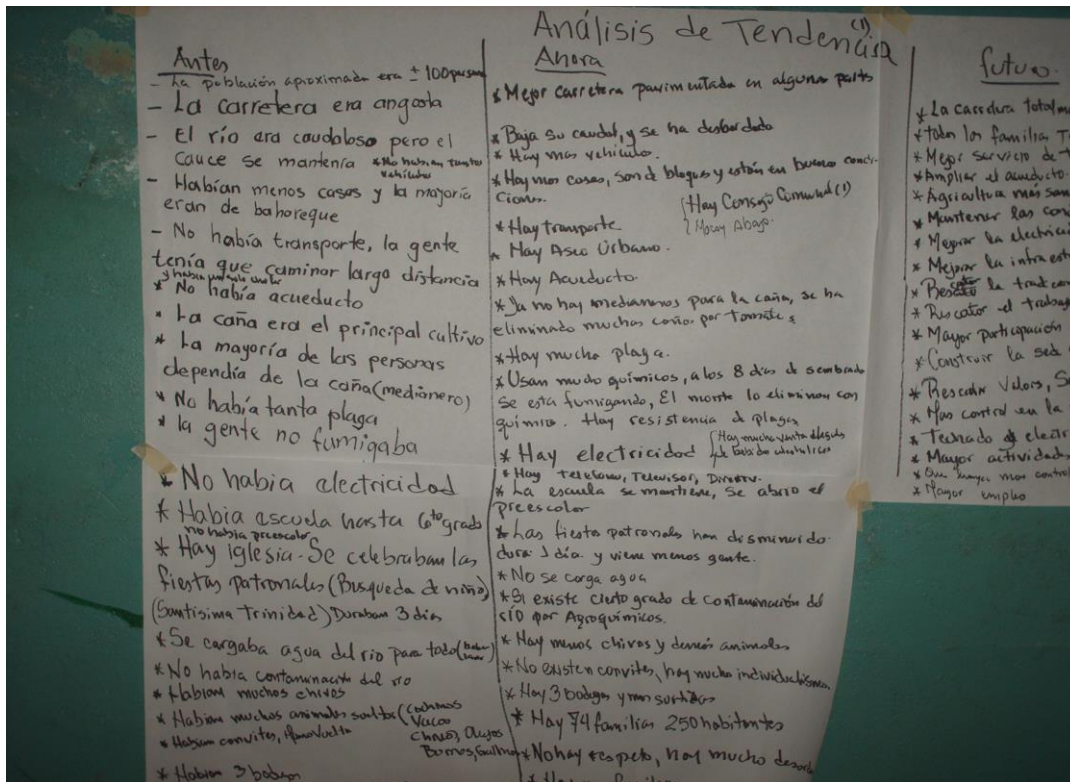 Análisis de Tendencia (1)
Antes
- La población aproximada era ± 100 person
- La carretera era angosta
- El río era caudaloso pero el
cauce se mantenía * No habian tantos
vehiculos
- Habían menos casas y la mayoría
eran de bahareque
- No había transporte, la gente
tenía que caminar largo distancia
* No había acueducto
* La caña era el principal cultivo
* La mayoría de las personas
dependía de la caña (medianero)
* No había tanta plaga
* la gente no fumigaba
* No habia electricidad
* Habia escuela hasta 6to grado
no habia preescolar
* Hay iglesia. Se celebraban las
fiestas patronales (Busqueda de niño)
(Santisima Trinidad) Duraban 3 dias
* Se cargaba agua del rio para todo
* No habia contaminación del rio
* Habian muchos chivos
* Habian muchos animales sueltos (cochinos
Vacas
Chivos, Ovejos
Burros, Gallinas
* Habian convites, Mano Vuelta
* Habian 3 bodegas
Ahora
* Mejor carretera pavimentada en algunas partes
* Baja su caudal, y se ha desbordado
* Hay mas vehiculos.
* Hay mas casas, son de bloques y están en buenas condi-
ciones.
{Hay Consejo Comunal (1)
Mocoy Abajo
* Hay transporte
* Hay Aseo Urbano.
* Hay Acueducto.
* Ya no hay medianeros para la caña, se ha
eliminado muchas cañas por tomates
* Hay mucha plaga.
* Usan mucho químicos, a los 8 dias de sembrado
se esta fumigando, El monte lo eliminan con
químico. Hay resistencia de plagas
* Hay electricidad {Hay mucha venta ilegales
de bebidas alcoholicas
* Hay telefono, Televisor, Directv.
* La escuela se mantiene, se abrio el
preescolar
* Las fiestas patronales han disminuido
dura 1 día. y viene menos gente.
* No se carga agua
* Si existe cierto grado de contaminación del
río por Agroquímicos.
* Hay menos chivos y demás animales
* No existen convites, hay mucho individualismo.
* Hay 3 bodegas y mas surtidas
* Hay 74 familias 250 habitantes
* No hay respeto, hay mucho desord
futuro.
* La carretera total
* todas las familias T
* Mejor servicio de t
* Ampliar el acueducto.
* Agricultura más san
* Mantener las con
* Mejorar la electrici
* Mejorar la infraest
* Rescatar la tradicion
* Rescatar el trabaj
* Mayor participación
* Construir la sed
* Rescatar Valores, S
* Mas control en la
* Techado
* Mayor actividad
* Que haya mas control
* Mayor empleo